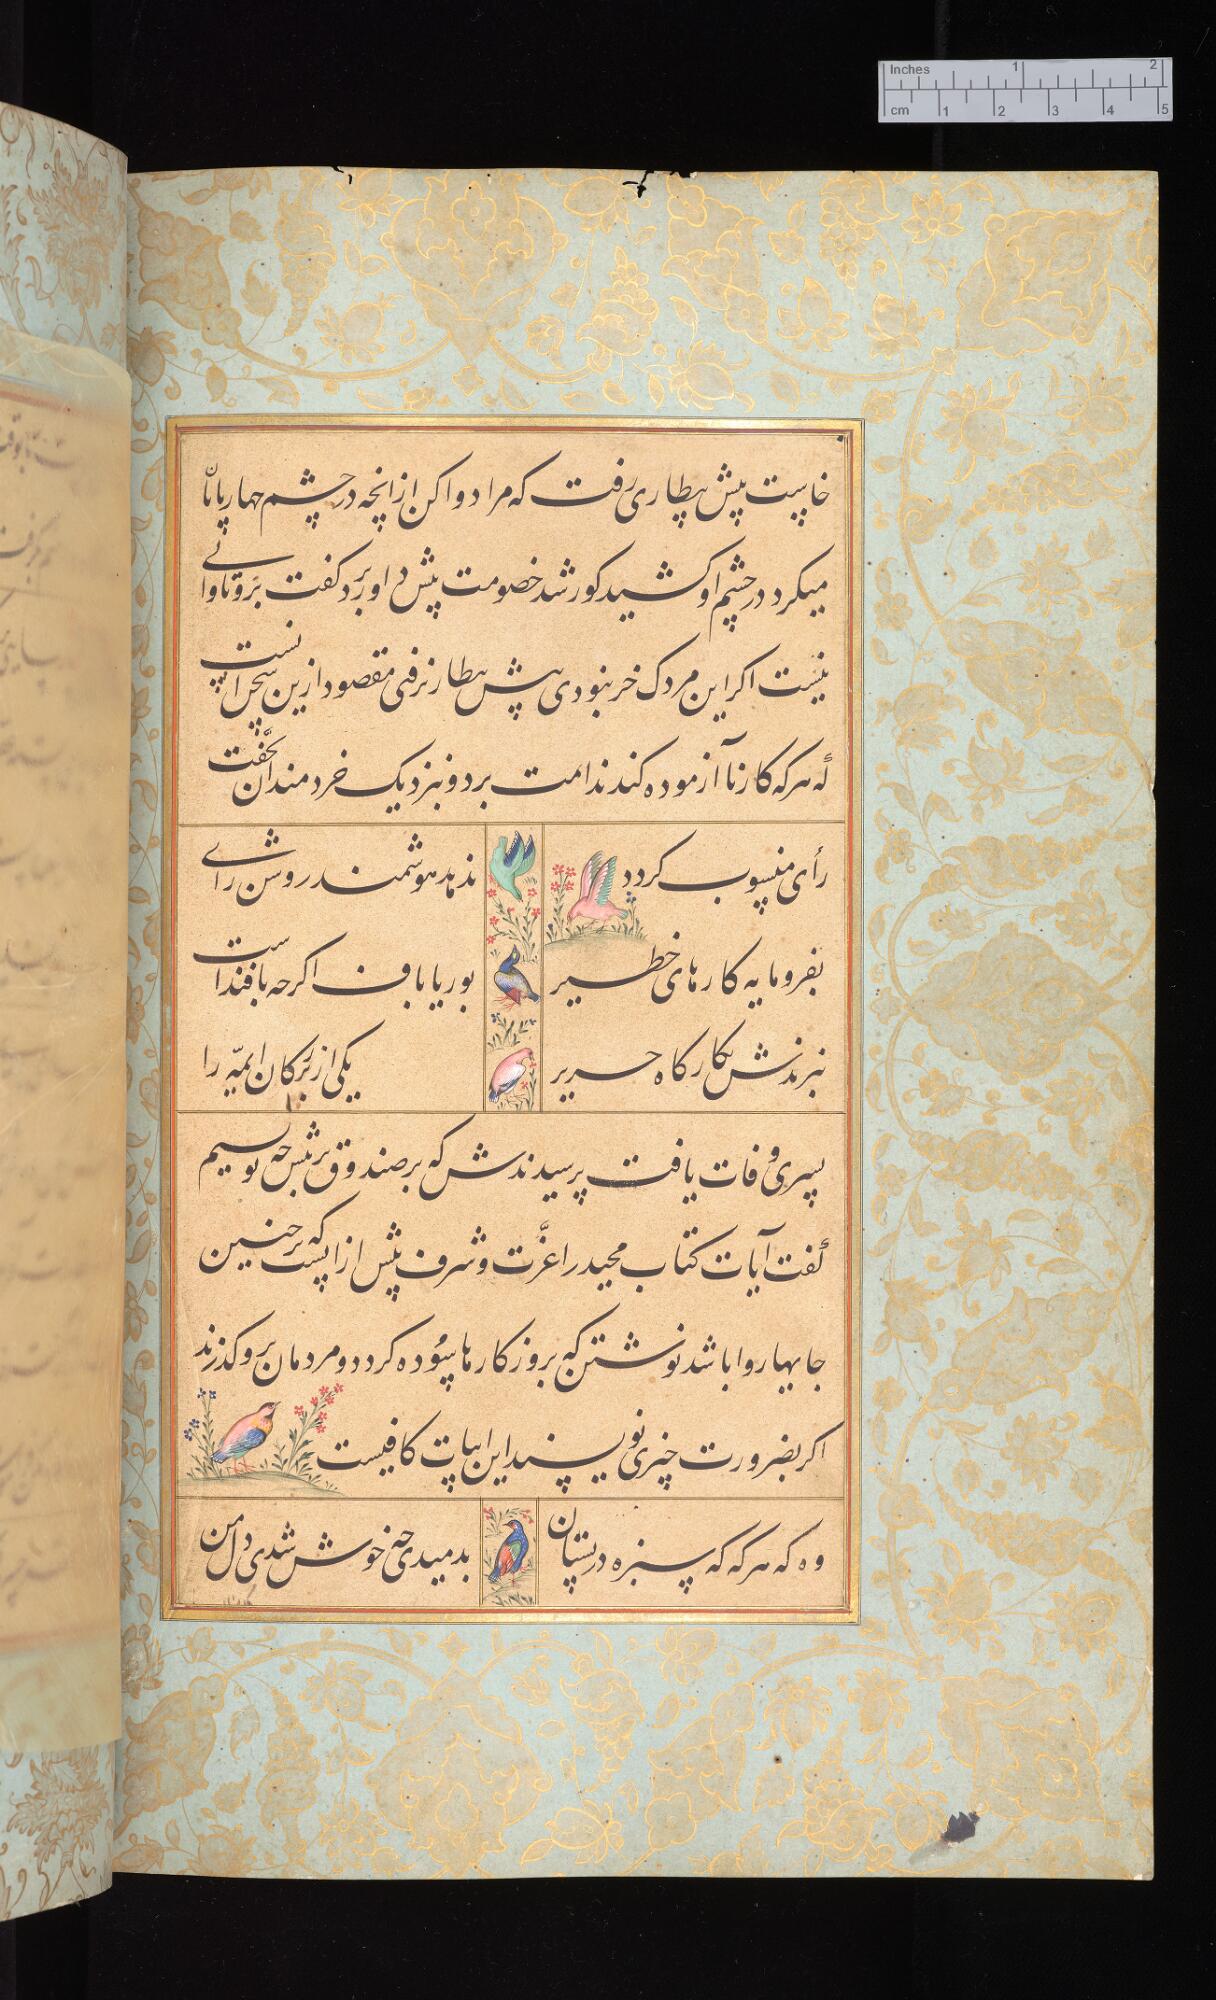 خاست پیش بیطاری رفت که مرا دوا کن از انچه در چشم چهارپایان
میکرد در چشم او کشید کور شد خصومت پیش داور برد کفت برو تاوانی
نیست اکر این مردک خر نبودی پیش بیطار نرفتی مقصود ازین سخن انست
که هرکه کار نا آزموده کند ندامت برد و نزدیک خردمندان بخفت
رأی منسوب کردد
ندهد هوشمند روشن رای
بفرومایه کارهای خطیر
بوریا باف اکرچه بافنداست
نبرندش بکارکاه حریر
یکی از بزرکان ایمّه را
پسری وفات یافت پرسیدندش که بر صندوق قبرش چه نویسیم
کفت آیات کتاب مجید را عزّت و شرف بیش از انست که بر چنین
جایها روا باشد نوشتن که بروزکارها سوده کردد و مردمان برو کذرند
اکر بضرورت چیزی نویسند این ابیات کافیست
وه که هرکه که سبزه در بستان
بدمیدی چه خوش شدی دل من
Inches 1 2
cm 1 2 3 4 5